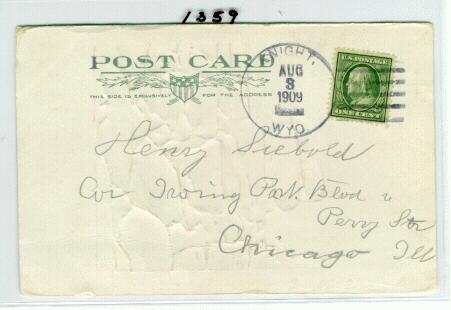 1359
POST CARD
THIS SIDE IS EXCLUSIVELY FOR THE ADDRESS
KNIGHT,
AUG
3
1909
WYO.
U.S. POSTAGE
ONE CENT
Henry Siebold
Cor Irving Park Blvd &
Perry Str
Chicago Ill